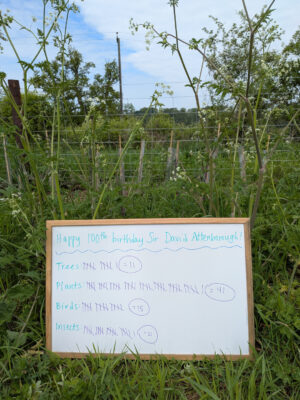 Happy 100th birthday Sir David Attenborough!
Trees: 𝍸 𝍸 | =11
Plants: 𝍸 𝍸 𝍸 𝍸 𝍸 𝍸 𝍸 𝍸 | =41
Birds: 𝍸 𝍸 𝍸 =15
Insects: 𝍸 𝍸 𝍸 𝍸 | =21